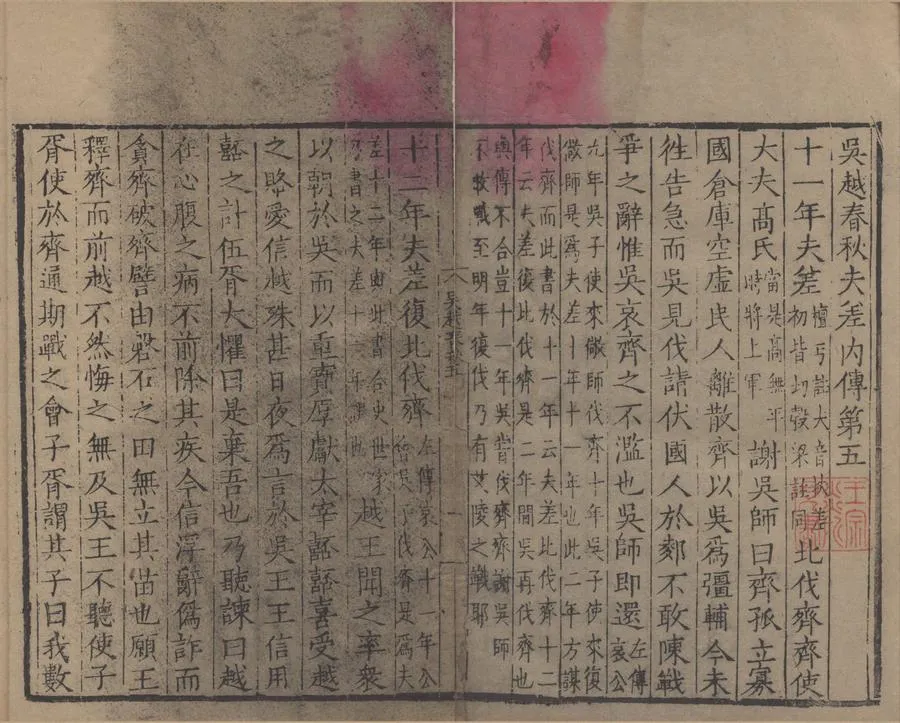 吳越春秋夫差內傳第五
十一年夫差檀弓註大音泰差初皆切穀梁註同北伐齊齊使
大夫高氏當是高無平時將上軍謝吳師曰齊孤立寡
國倉庫空虛民人離散齊以吳爲彊輔今未
徃告急而吳見伐請伏國人於郊不敢陳戰
爭之辭惟吳哀齊之不濫也吳師即還左傳哀公
九年吳子使來儆師伐齊十年吳子使來復
儆師是爲夫差十年十一年也此二年方謀
伐齊而此書於十一年云夫差北伐齊十二
年云夫差復北伐齊是二年間吳再伐齊也
與傳不合豈十一年吳嘗伐齊齊謝吳師
不敢戰至明年復伐乃有艾陵之戰耶
十二年夫差復北伐齊左傳哀公十一年公會吳子伐齊是爲夫
差十二年與此書合史世家書之夫差十一年誤也越王聞之率衆
以朝於吳而以重寶厚獻太宰嚭嚭喜受越
之賂愛信越殊甚日夜爲言於吳王王信用
嚭之計伍胥大懼曰是棄吾也乃聽諫曰越
在心腹之病不前除其疾今信浮辭僞詐而
貪齊破齊譬由磐石之田無立其苗也願王
釋齊而前越不然悔之無及吳王不聽使子
胥使於齊通期戰之會子胥謂其子曰我數